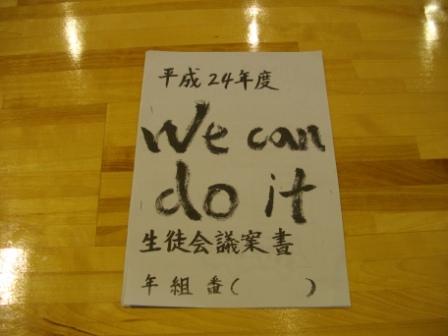 平成24年度
We can
do it
生徒会議案書
年 組 番( )